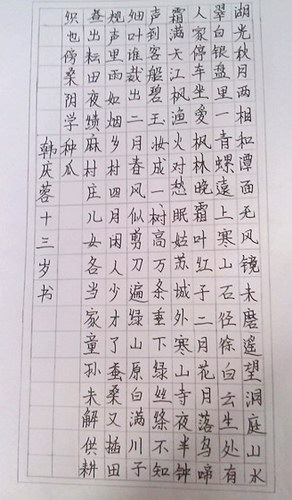 湖光秋月两相和潭面无风镜未磨遥望洞庭山水
翠白银盘里一青螺遠上寒山石径斜白云生处有
人家停车坐爱枫林晚霜叶红于二月花月落乌啼
霜满天江枫渔火对愁眠姑苏城外寒山寺夜半钟
声到客船碧玉妆成一树高万条垂下绿丝绦不知
细叶谁裁出二月春风似剪刀遍绿山原白满川子
规声里雨如烟乡村四月闲人少才了蚕桑又插田
昼出耘田夜绩麻村庄儿女各当家童孙未解供耕
织也傍桑阴学种瓜
韩庆蓉十三岁书